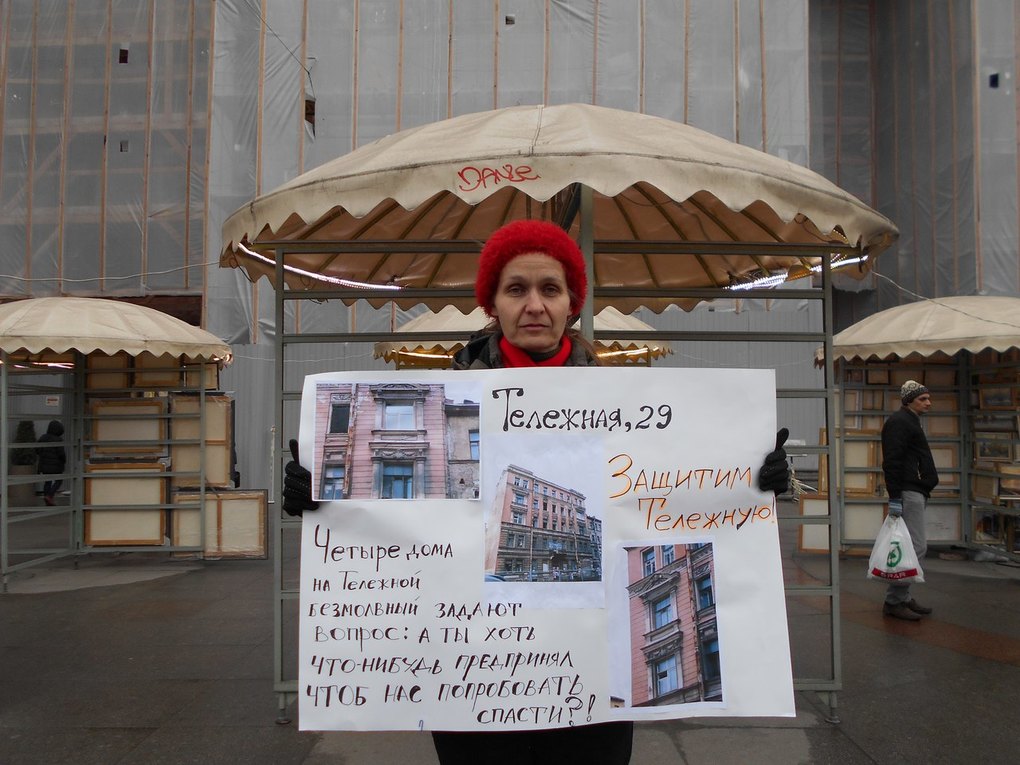 DANSE
Тележная, 29
Защитим
Тележную!
Четыре дома
на Тележной
безмолвный задают
вопрос: а ты хоть
что-нибудь предпринял
чтоб нас попробовать
спасти?!
SPAR